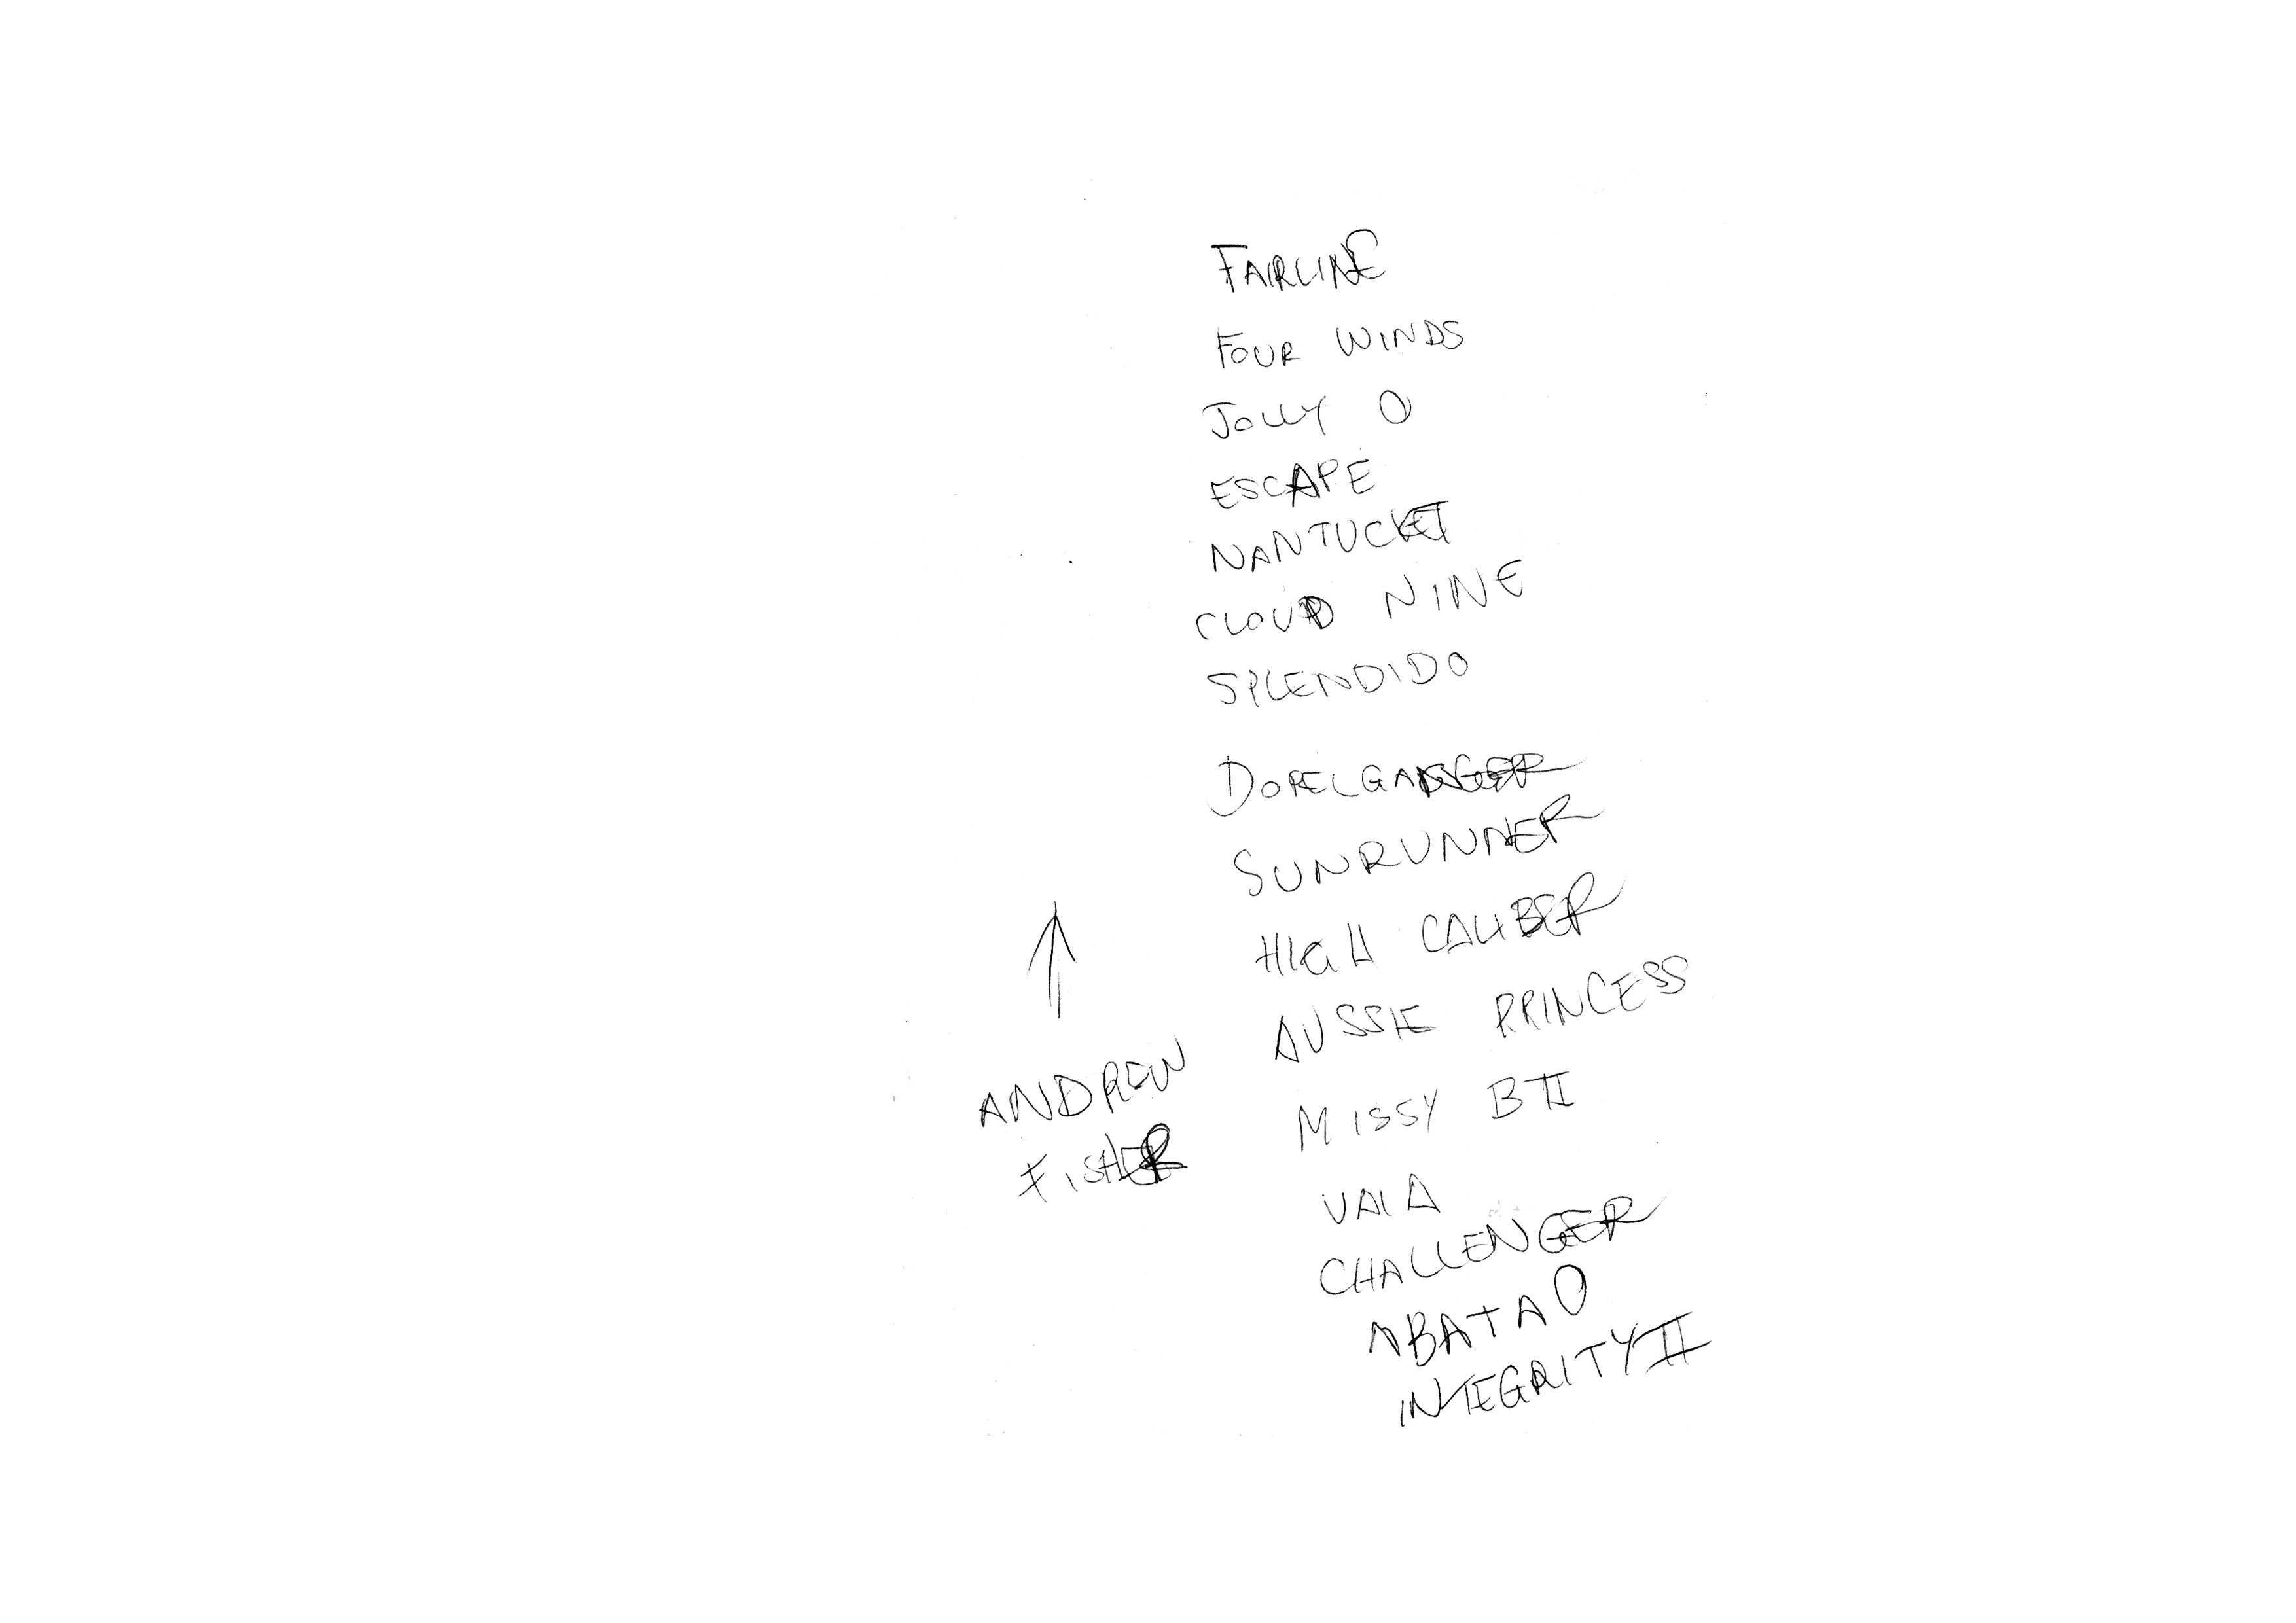 FAIRLINE
FOUR WINDS
JOLLY O
ESCAPE
NANTUCKET
CLOUD NINE
SPLENDIDO
DOPELGANGER
SUNRUNNER
HIGH CALIBER
AUSSIE PRINCESS
MISSY B II
VAIA
CHALLENGER
ABATAO
INTEGRITY II
ANDREW
FISHER